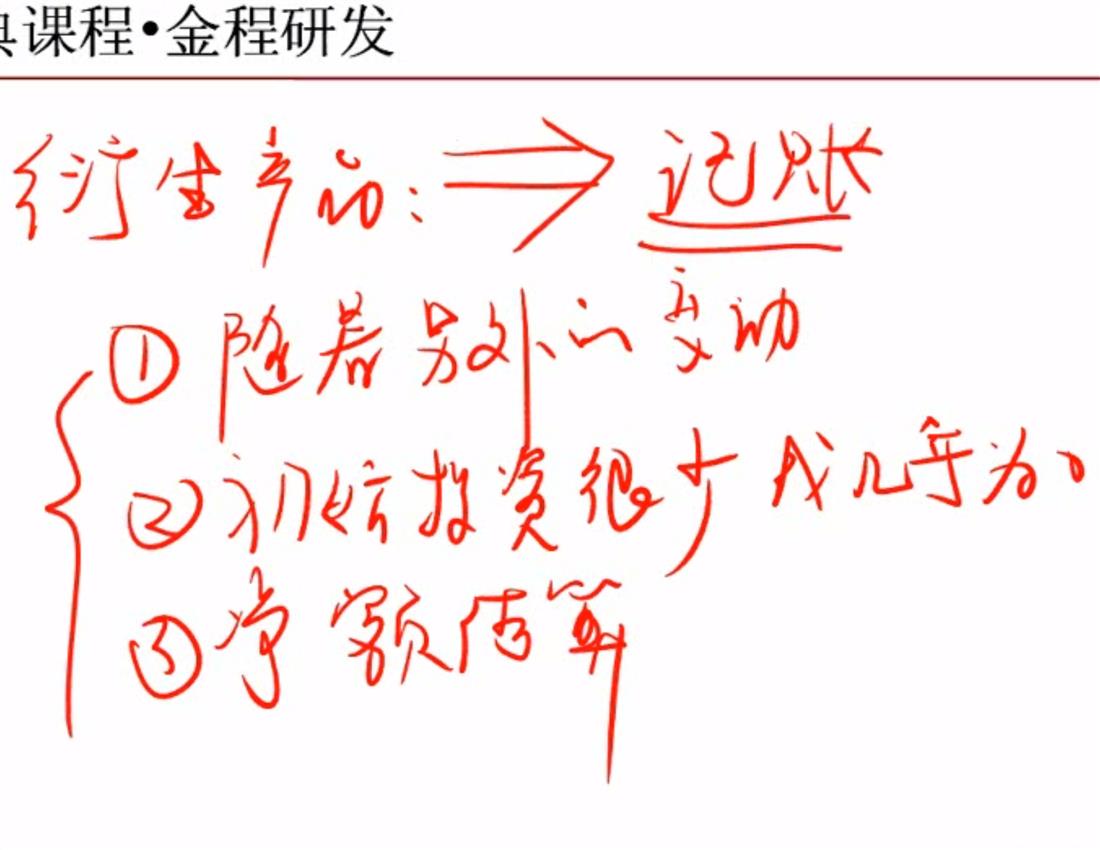 典课程•金程研发
衍生产品：⇒ 记账
① 随着另外的变动
② 初始投资很少或几乎为0
③ 净额结算